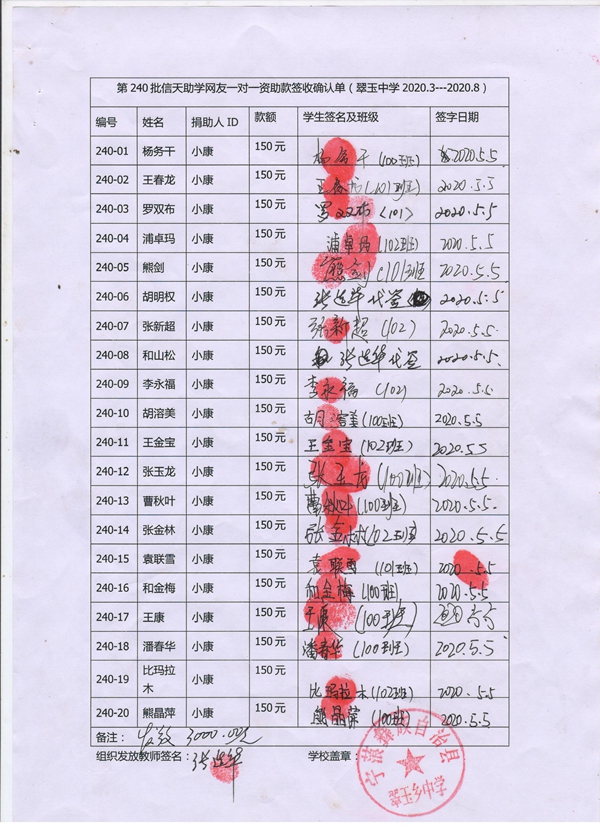 第240批信天助学网友一对一资助款签收确认单（翠玉中学2020.3---2020.8）
编号 姓名 捐助人ID 款额 学生签名及班级 签字日期
240-01 杨务干 小康 150元 杨务干（100班） 2020.5.5
240-02 王春龙 小康 150元 王春龙（101班） 2020.5.5
240-03 罗双布 小康 150元 罗双布（101） 2020.5.5
240-04 浦卓玛 小康 150元 浦卓玛（102班） 2020.5.5
240-05 熊剑 小康 150元 熊剑（101班 2020.5.5
240-06 胡明权 小康 150元 张选华代签 2020.5.5
240-07 张新超 小康 150元 张新超（102） 2020.5.5.
240-08 和山松 小康 150元 张选华代签 2020.5.5.
240-09 李永福 小康 150元 李永福（102） 2020.5.5.
240-10 胡溶美 小康 150元 胡溶美（100班） 2020.5.5
240-11 王金宝 小康 150元 王金宝（102班） 2020.5.5
240-12 张玉龙 小康 150元 张玉龙（100班） 2020.5.5
240-13 曹秋叶 小康 150元 曹秋叶（100班） 2020.5.5.
240-14 张金林 小康 150元 张金林（102班） 2020.5.5
240-15 袁联雪 小康 150元 袁联雪（101班） 2020.5.5
240-16 和金梅 小康 150元 和金梅（100班） 2020.5.5
240-17 王康 小康 150元 王康（100班） 2020
240-18 潘春华 小康 150元 潘春华（100班） 2020.5.5
240-19 比玛拉木 小康 150元 比玛拉木（102班） 2020.5.5
240-20 熊晶萍 小康 150元 熊晶萍（100班） 2020.5.5
备注： 发放 3000.00元
组织发放教师签名：张选华 学校盖章：
宁蒗彝族自治县
翠玉乡中学